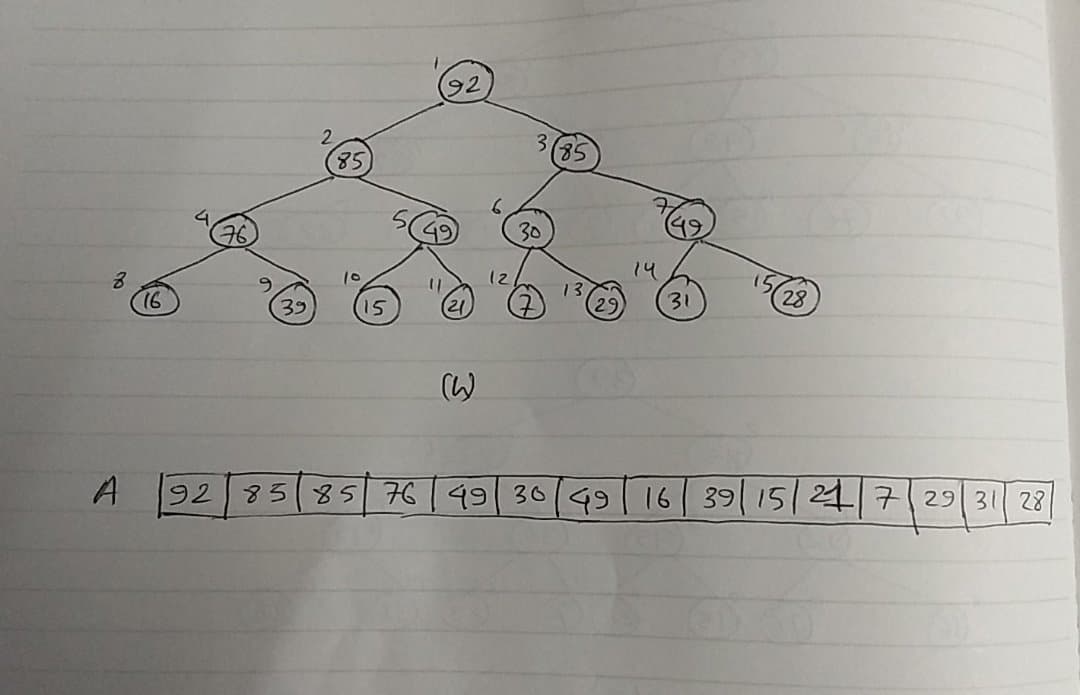 1 92
2 85 3 85
4 76 5 49 6 30 7 49
8 16 9 39 10 15 11 21 12 7 13 29 14 31 15 28
(h)
A 92 85 85 76 49 30 49 16 39 15 21 7 29 31 28